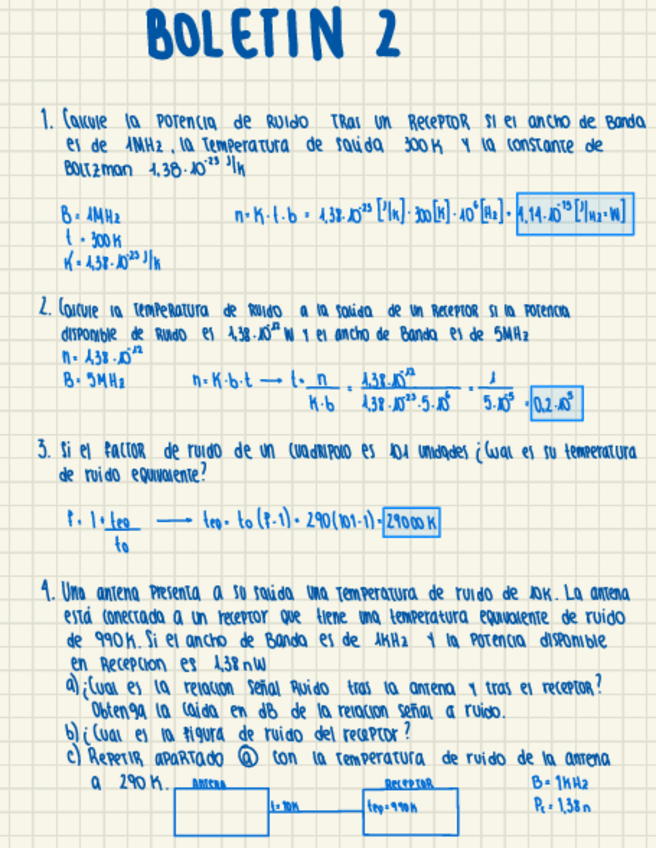 BOLETIN 2
1. Calcule la potencia de ruido tras un receptor si el ancho de banda
es de 1MHz, la temperatura de salida 300K y la constante de
Boltzman 1,38·10⁻²³ J/K
B = 1MHz
n = K·t·b = 1,38·10⁻²³ [J/K]·300[K]·10⁶[Hz] = 4,14·10⁻¹⁵ [J/Hz=W]
t = 300K
K = 1,38·10⁻²³ J/K
2. Calcule la temperatura de ruido a la salida de un receptor si la potencia
disponible de ruido es 1,38·10⁻¹² W y el ancho de banda es de 5MHz
n = 1,38·10⁻¹²
B = 5MHz n = K·b·t → t = n / K·b = 1,38·10⁻¹² / 1,38·10⁻²³·5·10⁶ = 1 / 5·10⁻⁵ = 0,2·10⁵
3. Si el factor de ruido de un cuadripolo es 101 unidades ¿Cual es su temperatura
de ruido equivalente?
f = 1 + teq / to → teq = to (f-1) = 290(101-1) = 29000 K
4. Una antena presenta a su salida una temperatura de ruido de 10K. La antena
está conectada a un receptor que tiene una temperatura equivalente de ruido
de 990K. Si el ancho de banda es de 1KHz y la potencia disponible
en recepcion es 1,38 nW
a) ¿Cual es la relacion señal ruido tras la antena y tras el receptor?
Obtenga la caida en dB de la relacion señal a ruido.
b) ¿Cual es la figura de ruido del receptor?
c) Repetir apartado ⓐ con la temperatura de ruido de la antena
a 290K.
ANTENA
RECEPTOR
B = 1KHz
t = 10K
teq = 990K
Pr = 1,38n